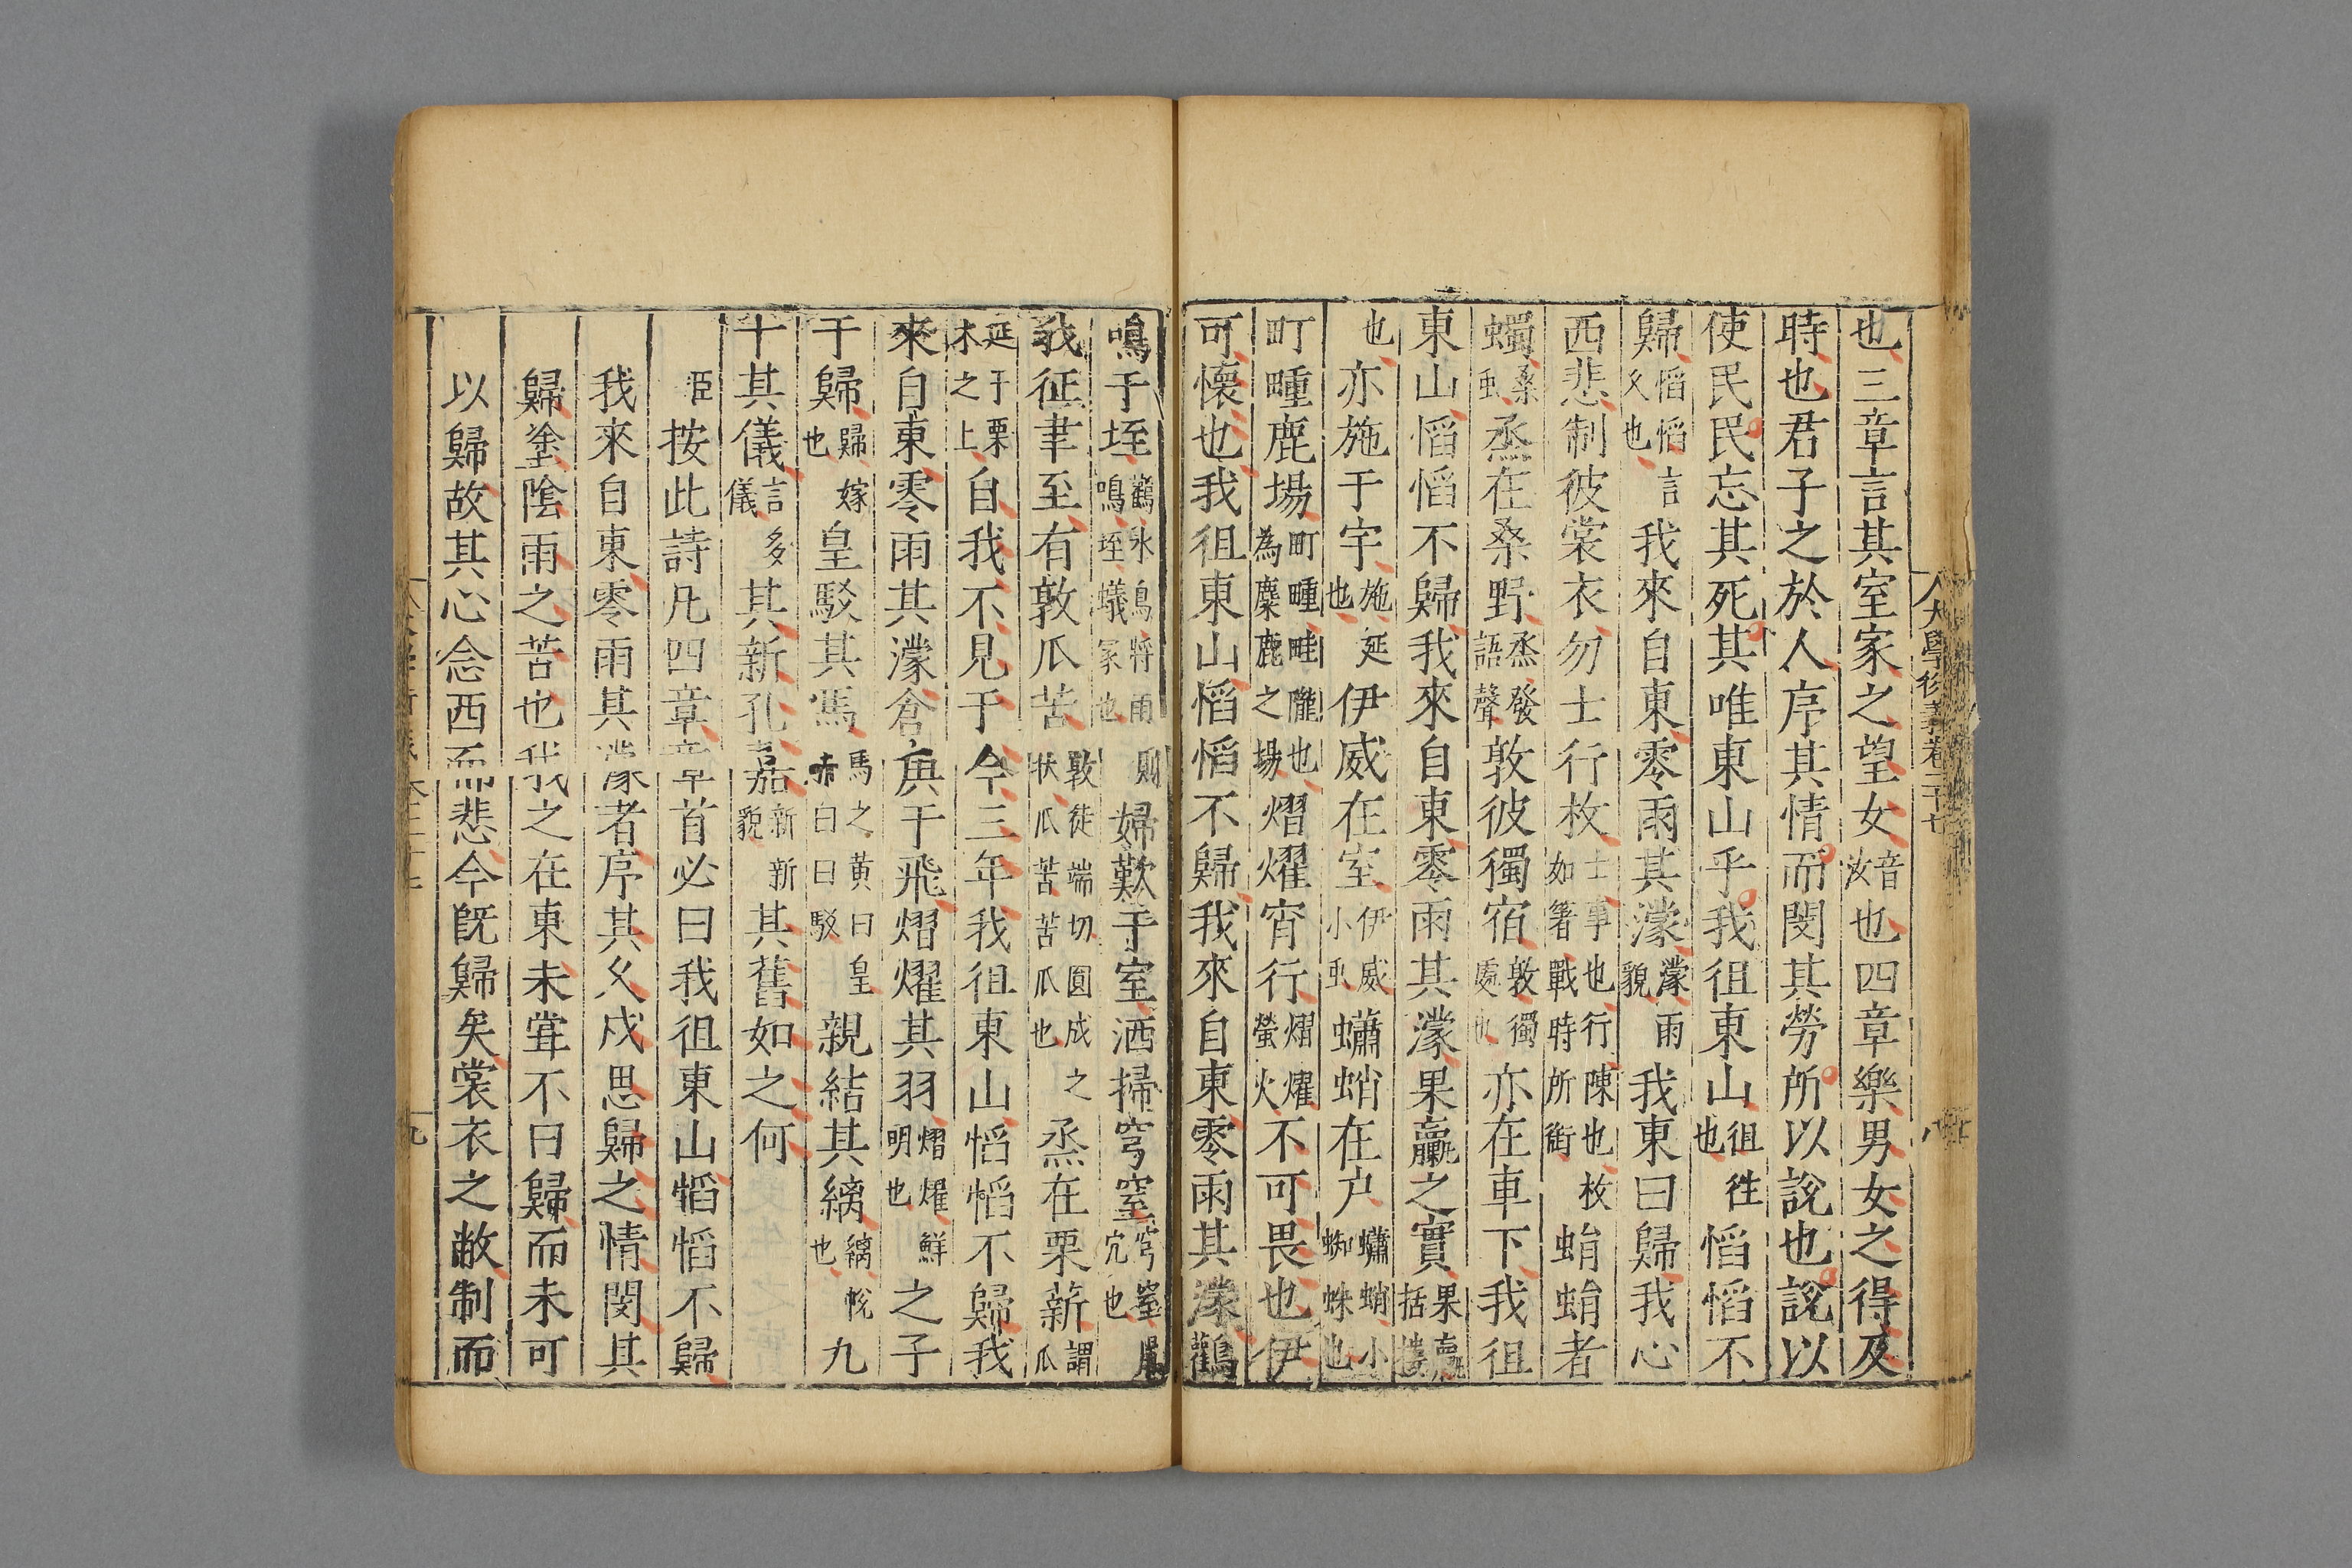 大學衍義卷二十七
也三章言其室家之望女音汝也四章樂男女之得及
時也君子之於人序其情而閔其勞所以說也說以
使民民忘其死其唯東山乎我徂東山徂往也慆慆不
歸慆慆言久也我來自東零雨其濛濛雨貌我東曰歸我心
西悲制彼裳衣勿士行枚士事也行陳也枚如箸戰時所銜蜎蜎者
蠋桑虫烝在桑野烝發語聲敦彼獨宿敦獨處也亦在車下我徂
東山慆慆不歸我來自東零雨其濛果臝之實果臝括樓
也亦施于宇施延也伊威在室伊威小虫蠨蛸在户蠨蛸小蜘蛛也
町畽鹿場町畽畦隴也為麋鹿之場熠燿宵行熠燿螢火不可畏也伊
可懷也我徂東山慆慆不歸我來自東零雨其濛鸛
鳴于垤鸛水鳥將雨則鳴垤蟻冢也婦歎于室洒掃穹窒穹窒鼠穴也
我征聿至有敦瓜苦敦徒端切圓成之狀瓜苦苦瓜也烝在栗薪謂瓜
延于栗木之上自我不見于今三年我徂東山慆慆不歸我
來自東零雨其濛倉庚于飛熠燿其羽熠燿鮮明也之子
于歸歸嫁也皇駁其馬馬之黃曰皇赤白曰駁親結其縭縭帨也九
十其儀言多儀其新孔嘉新新貌其舊如之何
臣按此詩凡四章章首必曰我徂東山慆慆不歸
我來自東零雨其濛者序其久戍思歸之情閔其
歸塗陰雨之苦也我之在東未甞不曰歸而未可
以歸故其心念西而悲今旣歸矣裳衣之敝制而
九